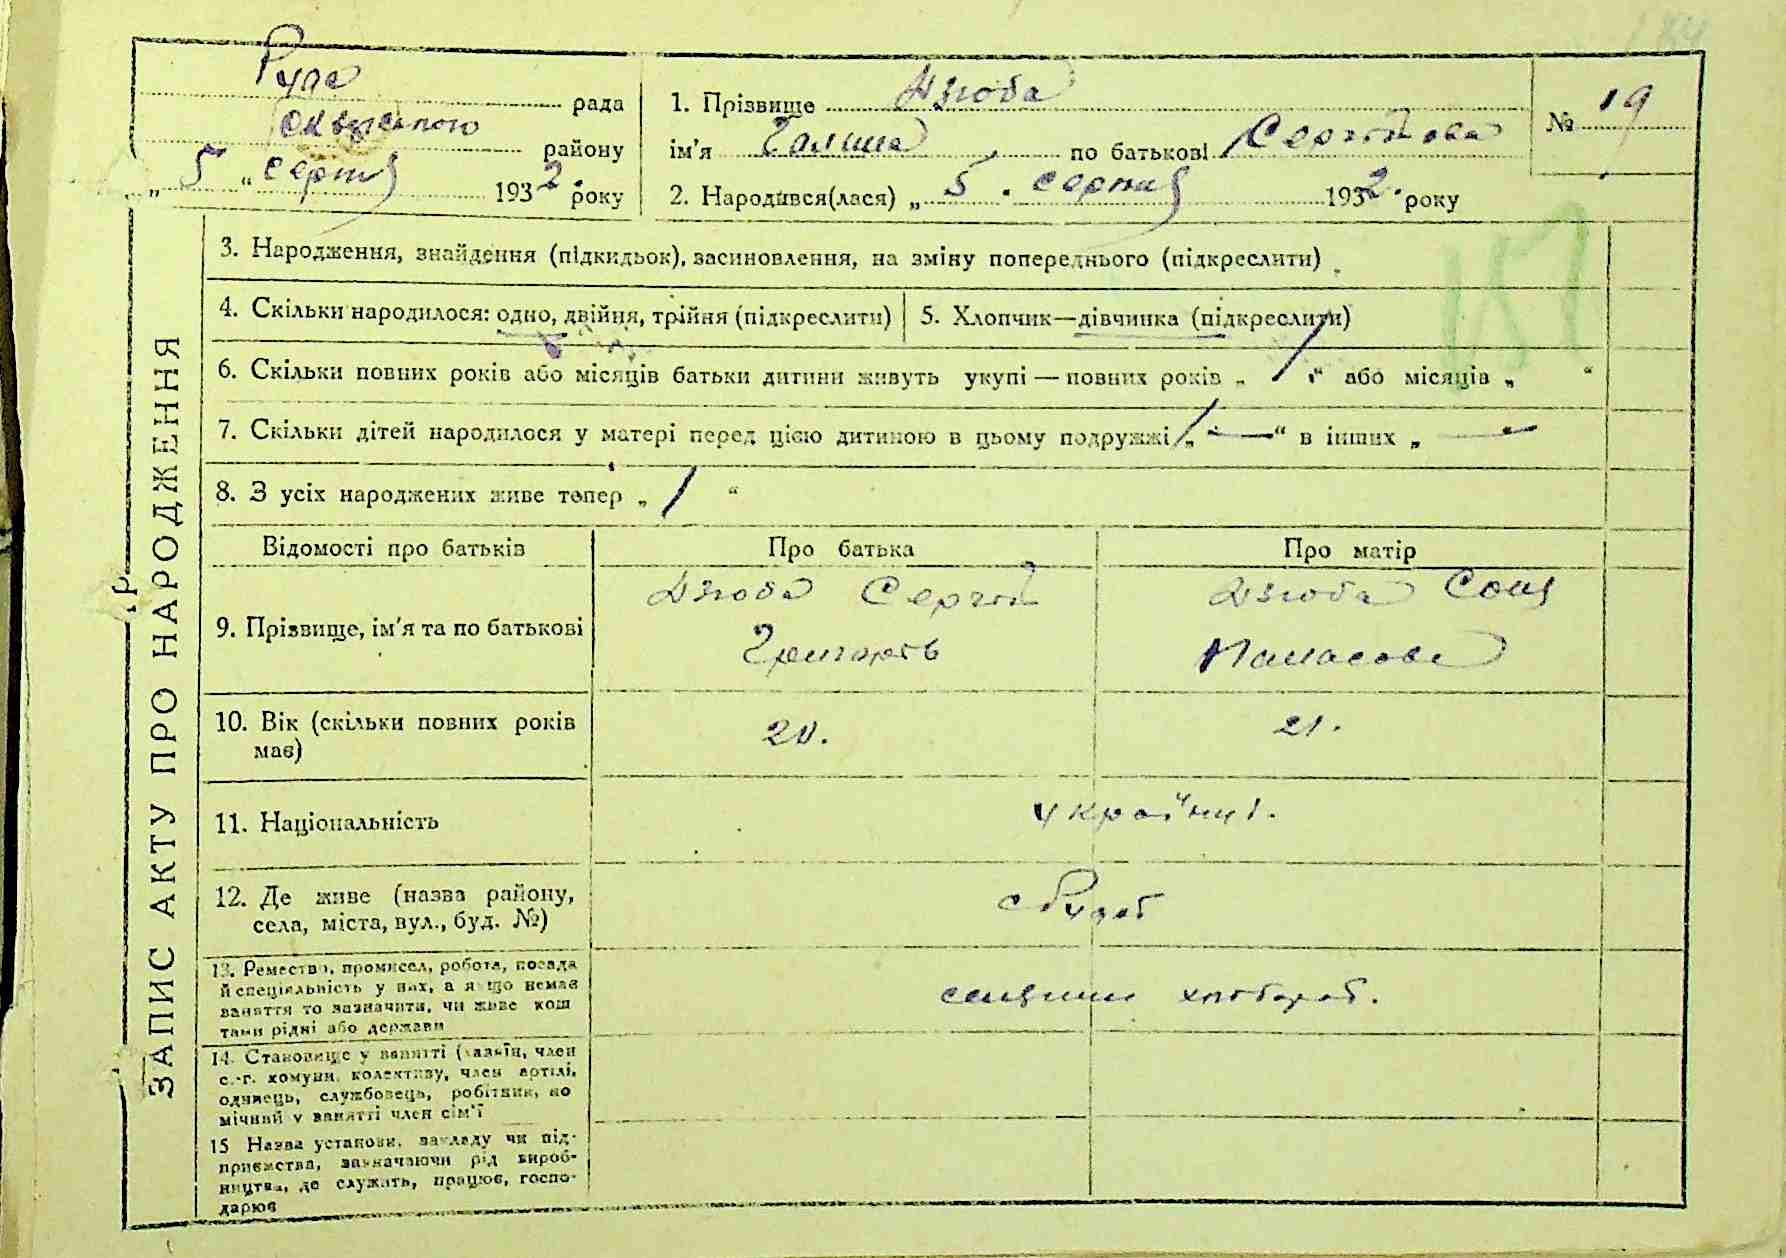 184
Руда рада
Сквирського району
„ 5 " серпня 1932. року
1. Прізвище Дзюба
ім'я Галина по батькові Сергійова
№ 19
2. Народився(лася) „ 5. серпня 1932. року
ЗАПИС АКТУ ПРО НАРОДЖЕННЯ
3. Народження, знайдення (підкидьок), засиновлення, на зміну попереднього (підкреслити)
4. Скільки народилося: одно, двійня, трійня (підкреслити) 5. Хлопчик—дівчинка (підкреслити)
6. Скільки повних років або місяців батьки дитини живуть укупі — повних років „ 1 " або місяців „ "
7. Скільки дітей народилося у матері перед цією дитиною в цьому подружжі „ — " в інших „ — "
8. З усіх народжених живе тепер „ 1 "
Відомості про батьків Про батька Про матір
9. Прізвище, ім'я та по батькові
Дзюба Сергій
Григорів
Дзюба Соня
Панасова
10. Вік (скільки повних років
має)
20. 21.
11. Національність українці.
12. Де живе (назва району,
села, міста, вул., буд. №)
с Руда
13. Ремество, промисел, робота, посада
й спеціяльність у них, а якщо немає
заняття то зазначити, чи живе кош
тами рідні або держави
хлібороб.
14. Становище у занятті (хазяїн, член
с.-г. комуни, колективу, член артілі,
одинець, службовець, робітник, по
мічний у занятті член сім'ї
15 Назва установи, закладу чи під-
приємства, зазначаючи рід вироб-
ництва, де служить, працює, госпо-
дарює